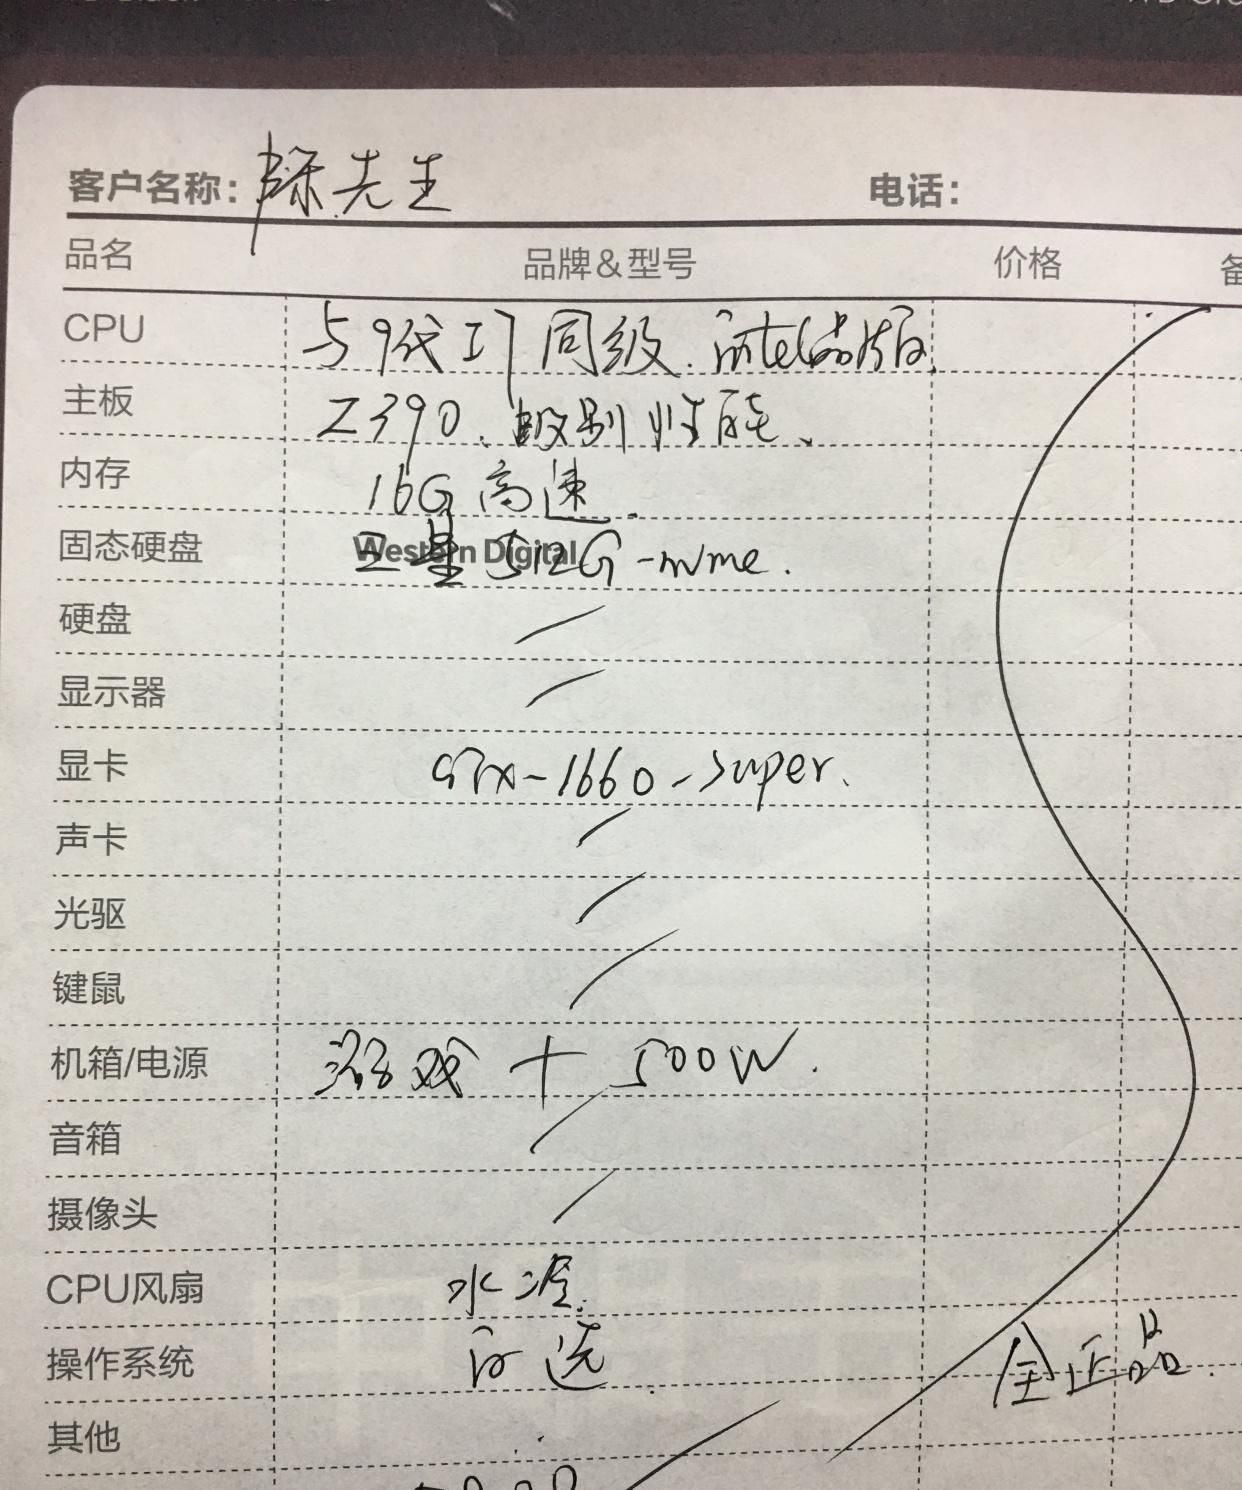 客户名称：陈先生 电话：
品名 品牌&型号 价格
CPU 与9代I7同级.intel品版
主板 Z390、级别性能、
内存 16G高速.
固态硬盘 Western Digital 三星512G-nvme.
硬盘 /
显示器 /
显卡 GTX-1660-super.
声卡 /
光驱 /
键鼠 /
机箱/电源 游戏+500W.
音箱 /
摄像头 /
CPU风扇 水冷.
操作系统 可选. 全正品.
其他